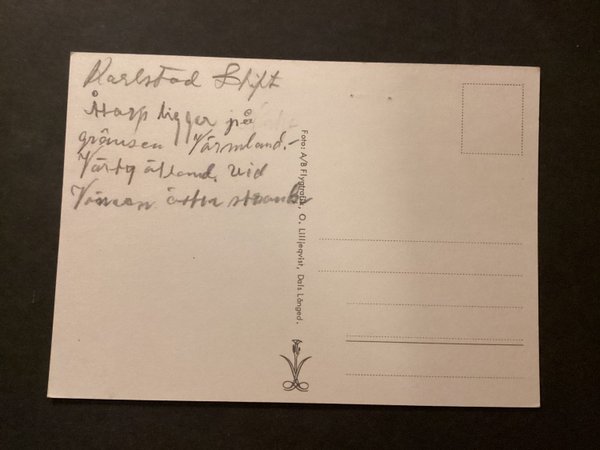 Karlstad Stift
Åtorp ligger på
gränsen Värmland.-
Västergötland, vid
Vänern östra strand
Foto: A/B Flygtrafik, O. Lilljeqvist, Dals Långed.